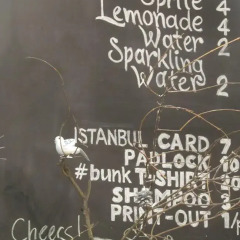 Sprite 4
Lemonade 4
Water 2
Sparkling
Water 2
ISTANBUL CARD 7
PADLOCK 10
#bunk T-SHIRT 20
SHAMPOO 3
PRINT-OUT 1/
Cheers!